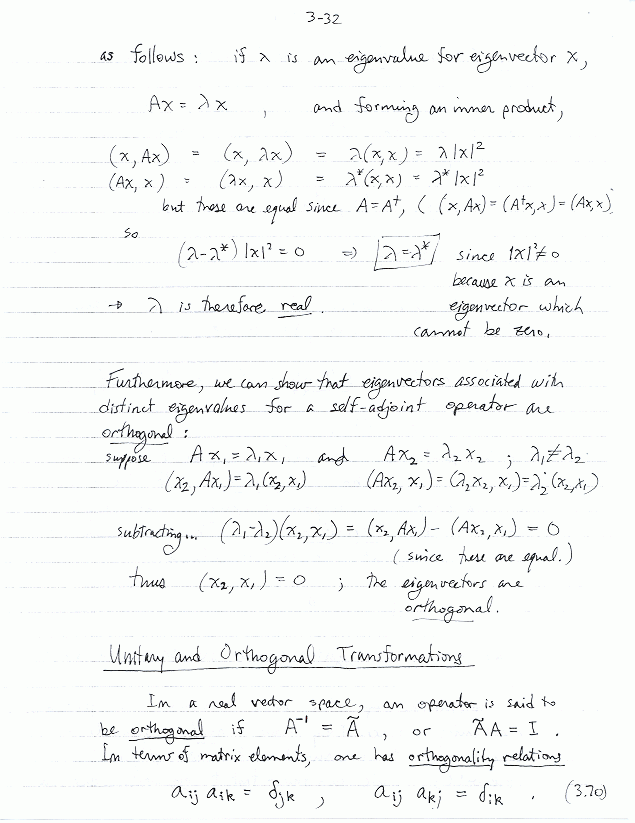 3-32
as follows : if λ is an eigenvalue for eigenvector x,
Ax = λx , and forming an inner product,
(x, Ax) = (x, λx) = λ(x,x) = λ|x|²
(Ax, x) = (λx, x) = λ*(x,x) = λ*|x|²
but these are equal since A=A†, ( (x,Ax) = (A†x,x) = (Ax,x)
so
(λ-λ*)|x|² = 0 ⇒ λ=λ* since |x|²≠0
because x is an
→ λ is therefore real. eigenvector which
cannot be zero.
Furthermore, we can show that eigenvectors associated with
distinct eigenvalues for a self-adjoint operator are
orthogonal :
suppose Ax₁=λ₁x₁ and Ax₂=λ₂x₂ ; λ₁≠λ₂
(x₂, Ax₁)=λ₁(x₂,x₁) (Ax₂, x₁)=(λ₂x₂, x₁)=λ₂*(x₂,x₁)
subtracting... (λ₁-λ₂)(x₂,x₁) = (x₂,Ax₁) - (Ax₂,x₁) = 0
(since these are equal.)
thus (x₂, x₁) = 0 ; the eigenvectors are
orthogonal.
Unitary and Orthogonal Transformations
In a real vector space, an operator is said to
be orthogonal if A⁻¹ = Ã , or ÃA = I .
In terms of matrix elements, one has orthogonality relations
aᵢⱼ aᵢₖ = δⱼₖ , aᵢⱼ aₖⱼ = δᵢₖ . (3.70)